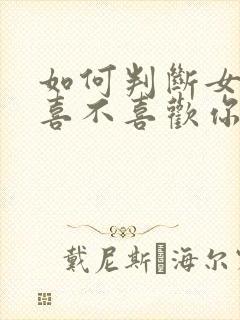 如何判斷女
喜不喜歡你
戴尼斯海尔